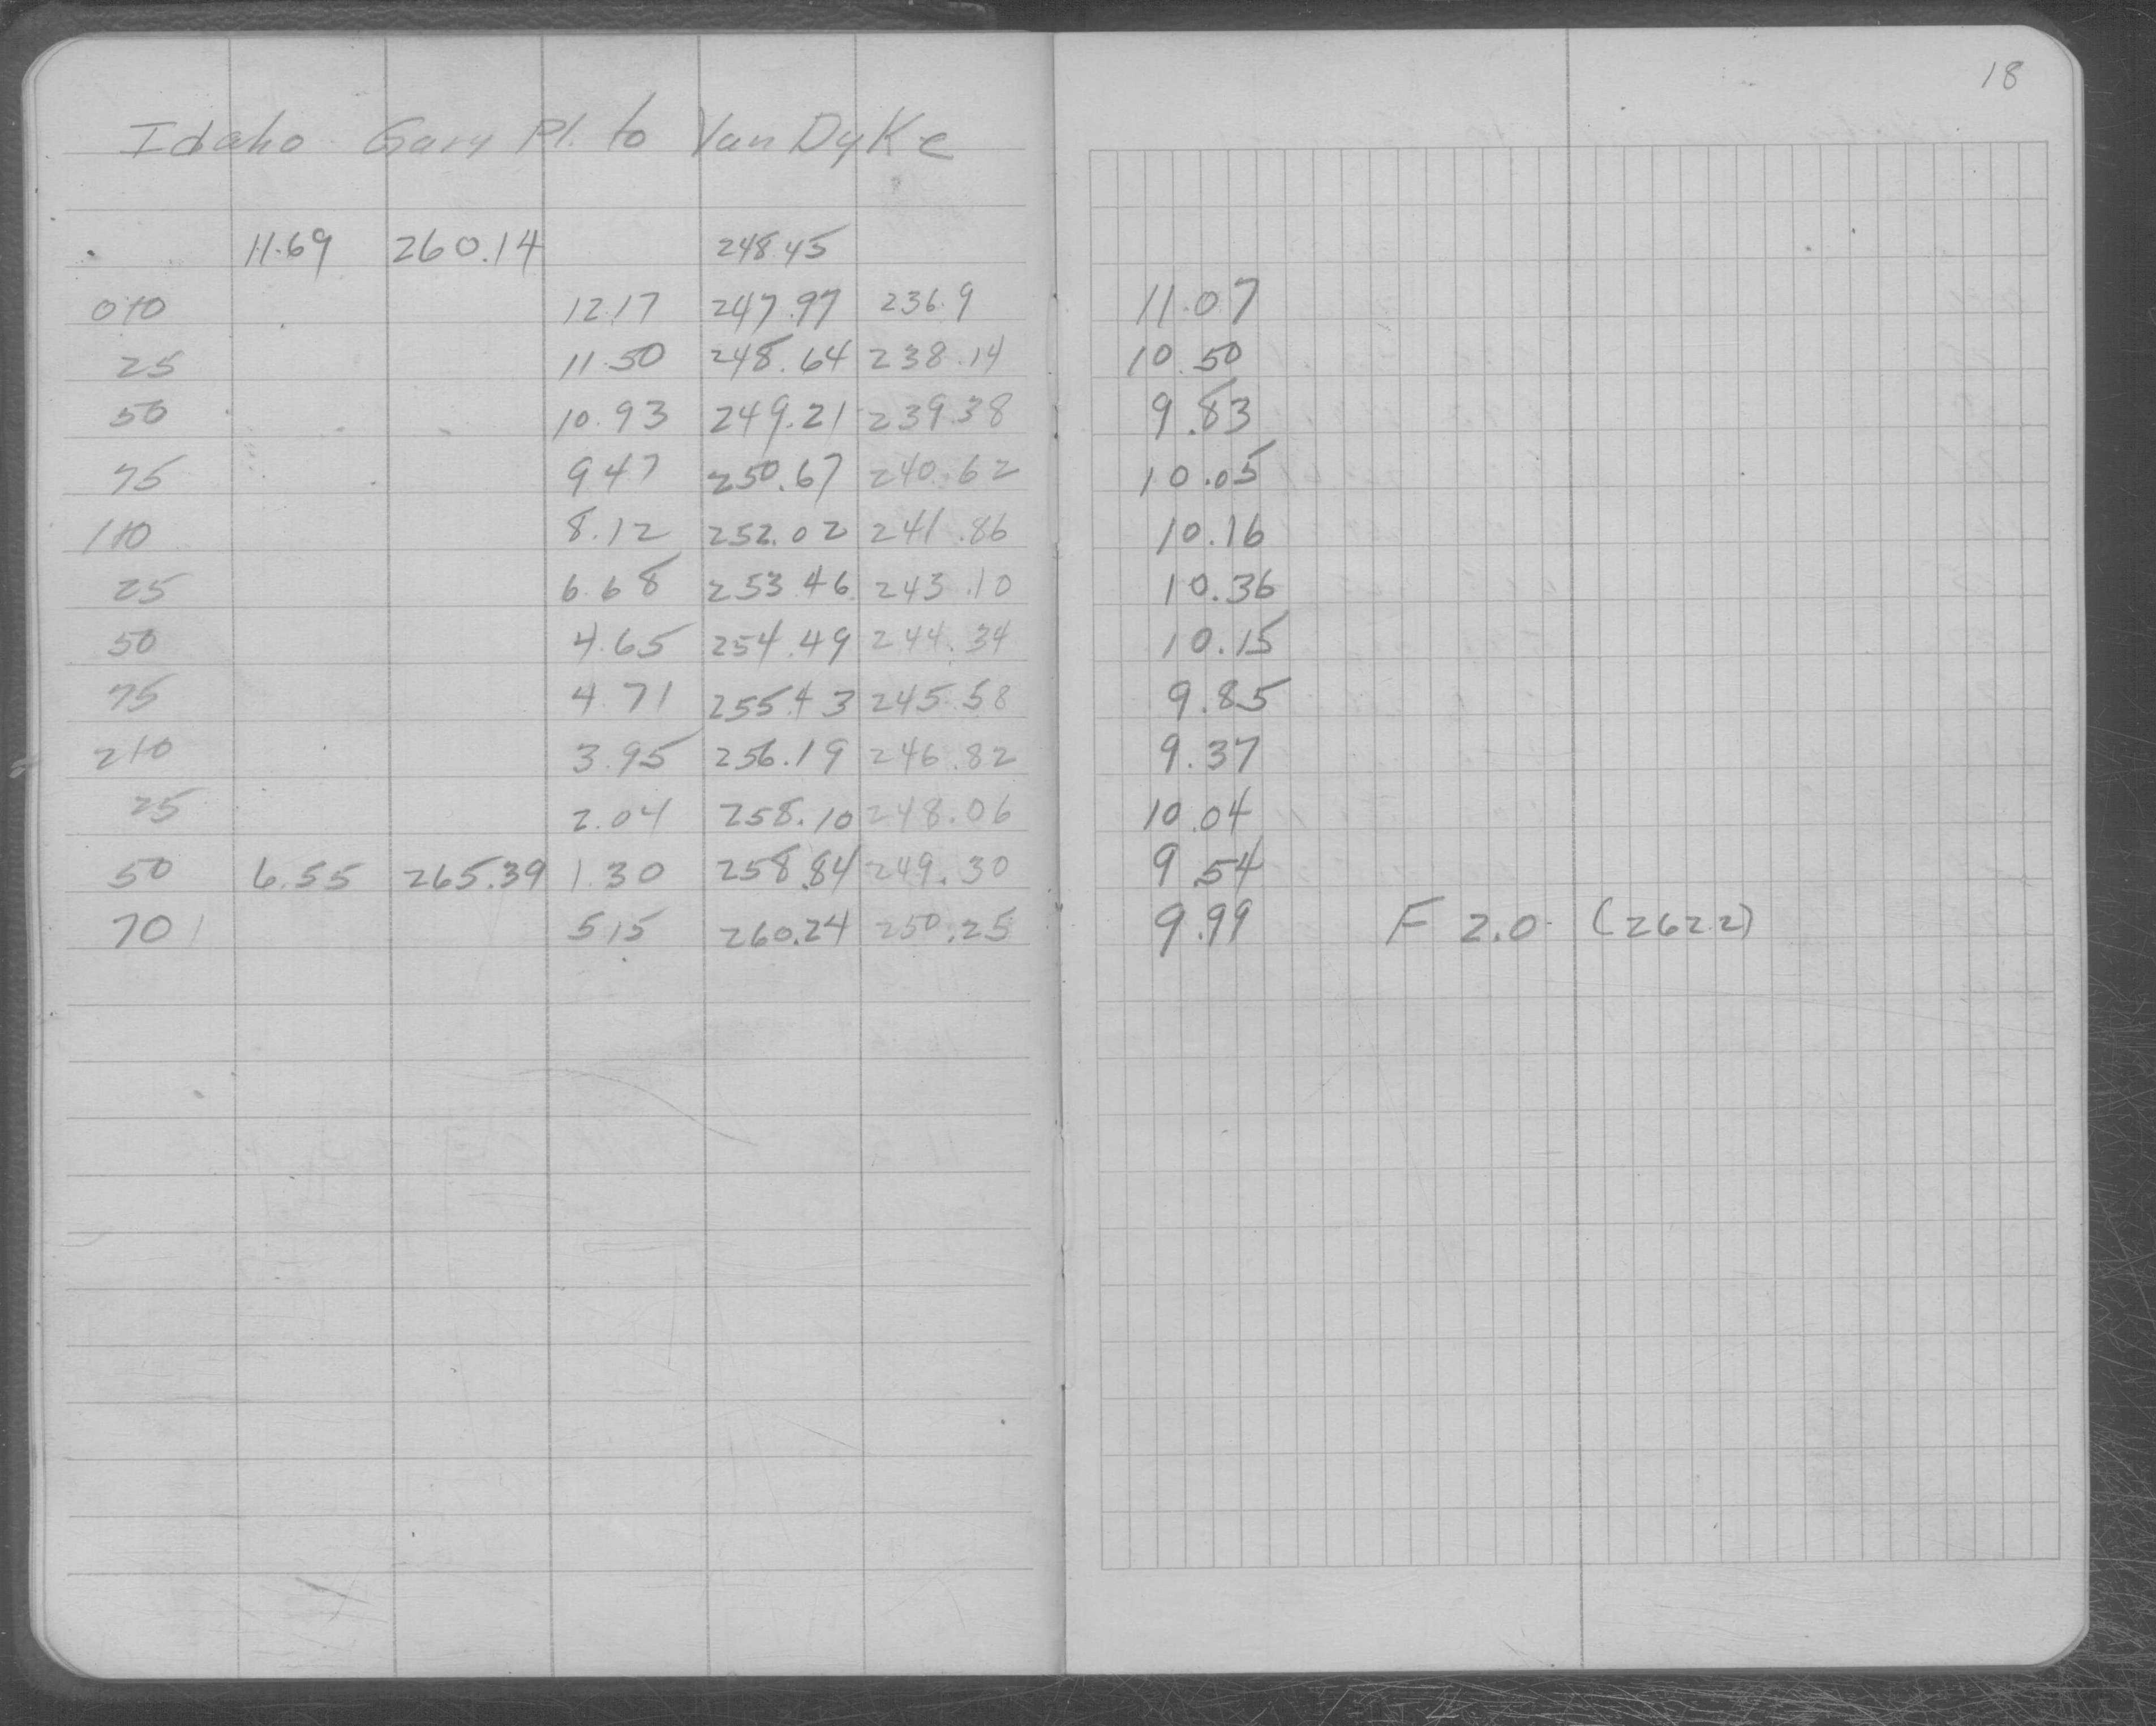 18
Idaho Gary Pl. to Van Dyke
11.69 260.14 248.45
0+0 12.17 247.97 236.9 11.07
25 11.50 248.64 238.14 10.50
50 10.93 249.21 239.38 9.83
75 9.47 250.67 240.62 10.05
1+0 8.12 252.02 241.86 10.16
25 6.68 253.46 243.10 10.36
50 4.65 254.49 244.34 10.15
75 4.71 255.43 245.58 9.85
2+0 3.95 256.19 246.82 9.37
25 2.04 258.10 248.06 10.04
50 6.55 265.39 1.30 258.84 249.30 9.54
70 5.15 260.24 250.25 9.99 F 2.0 (262.2)